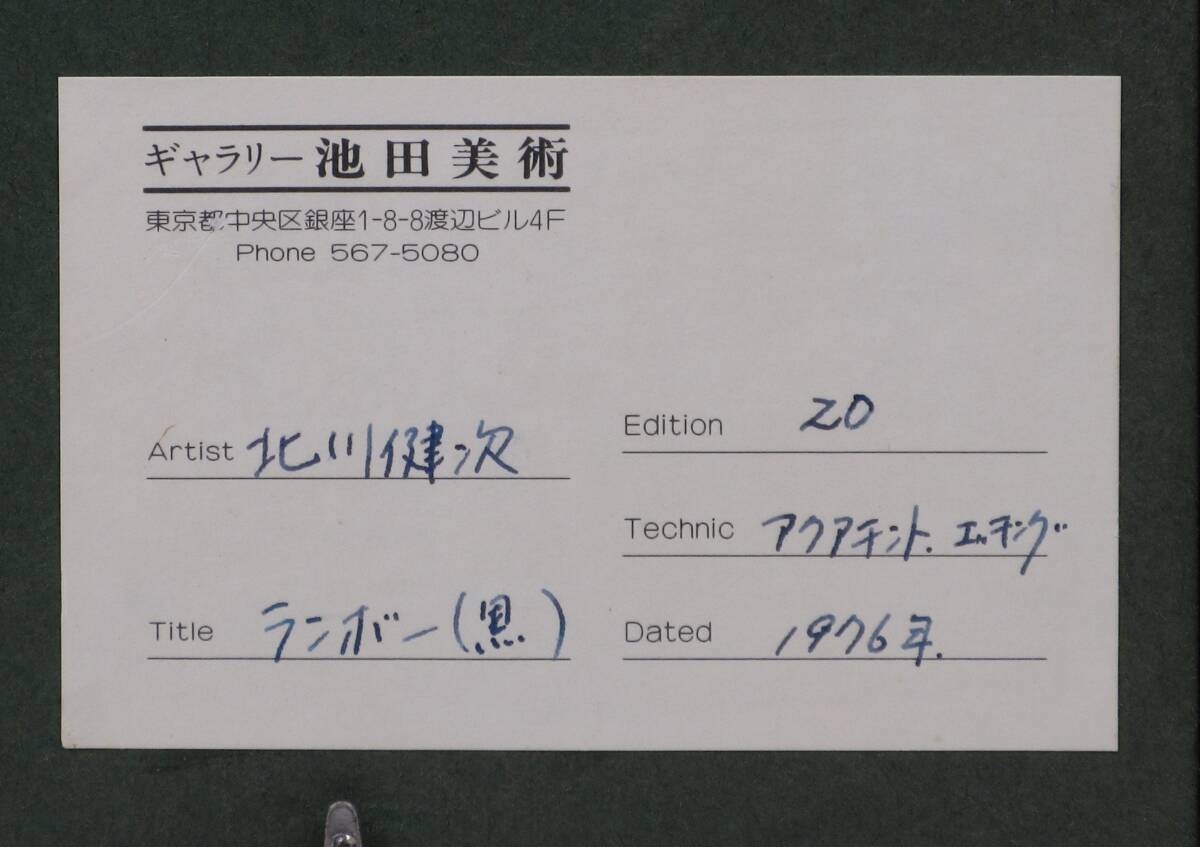 ギャラリー 池田美術
東京都中央区銀座1-8-8渡辺ビル4F
Phone 567-5080
Artist 北川健次
Title ランボー(黒)
Edition 20
Technic アクアチント. エッチング
Dated 1976年.